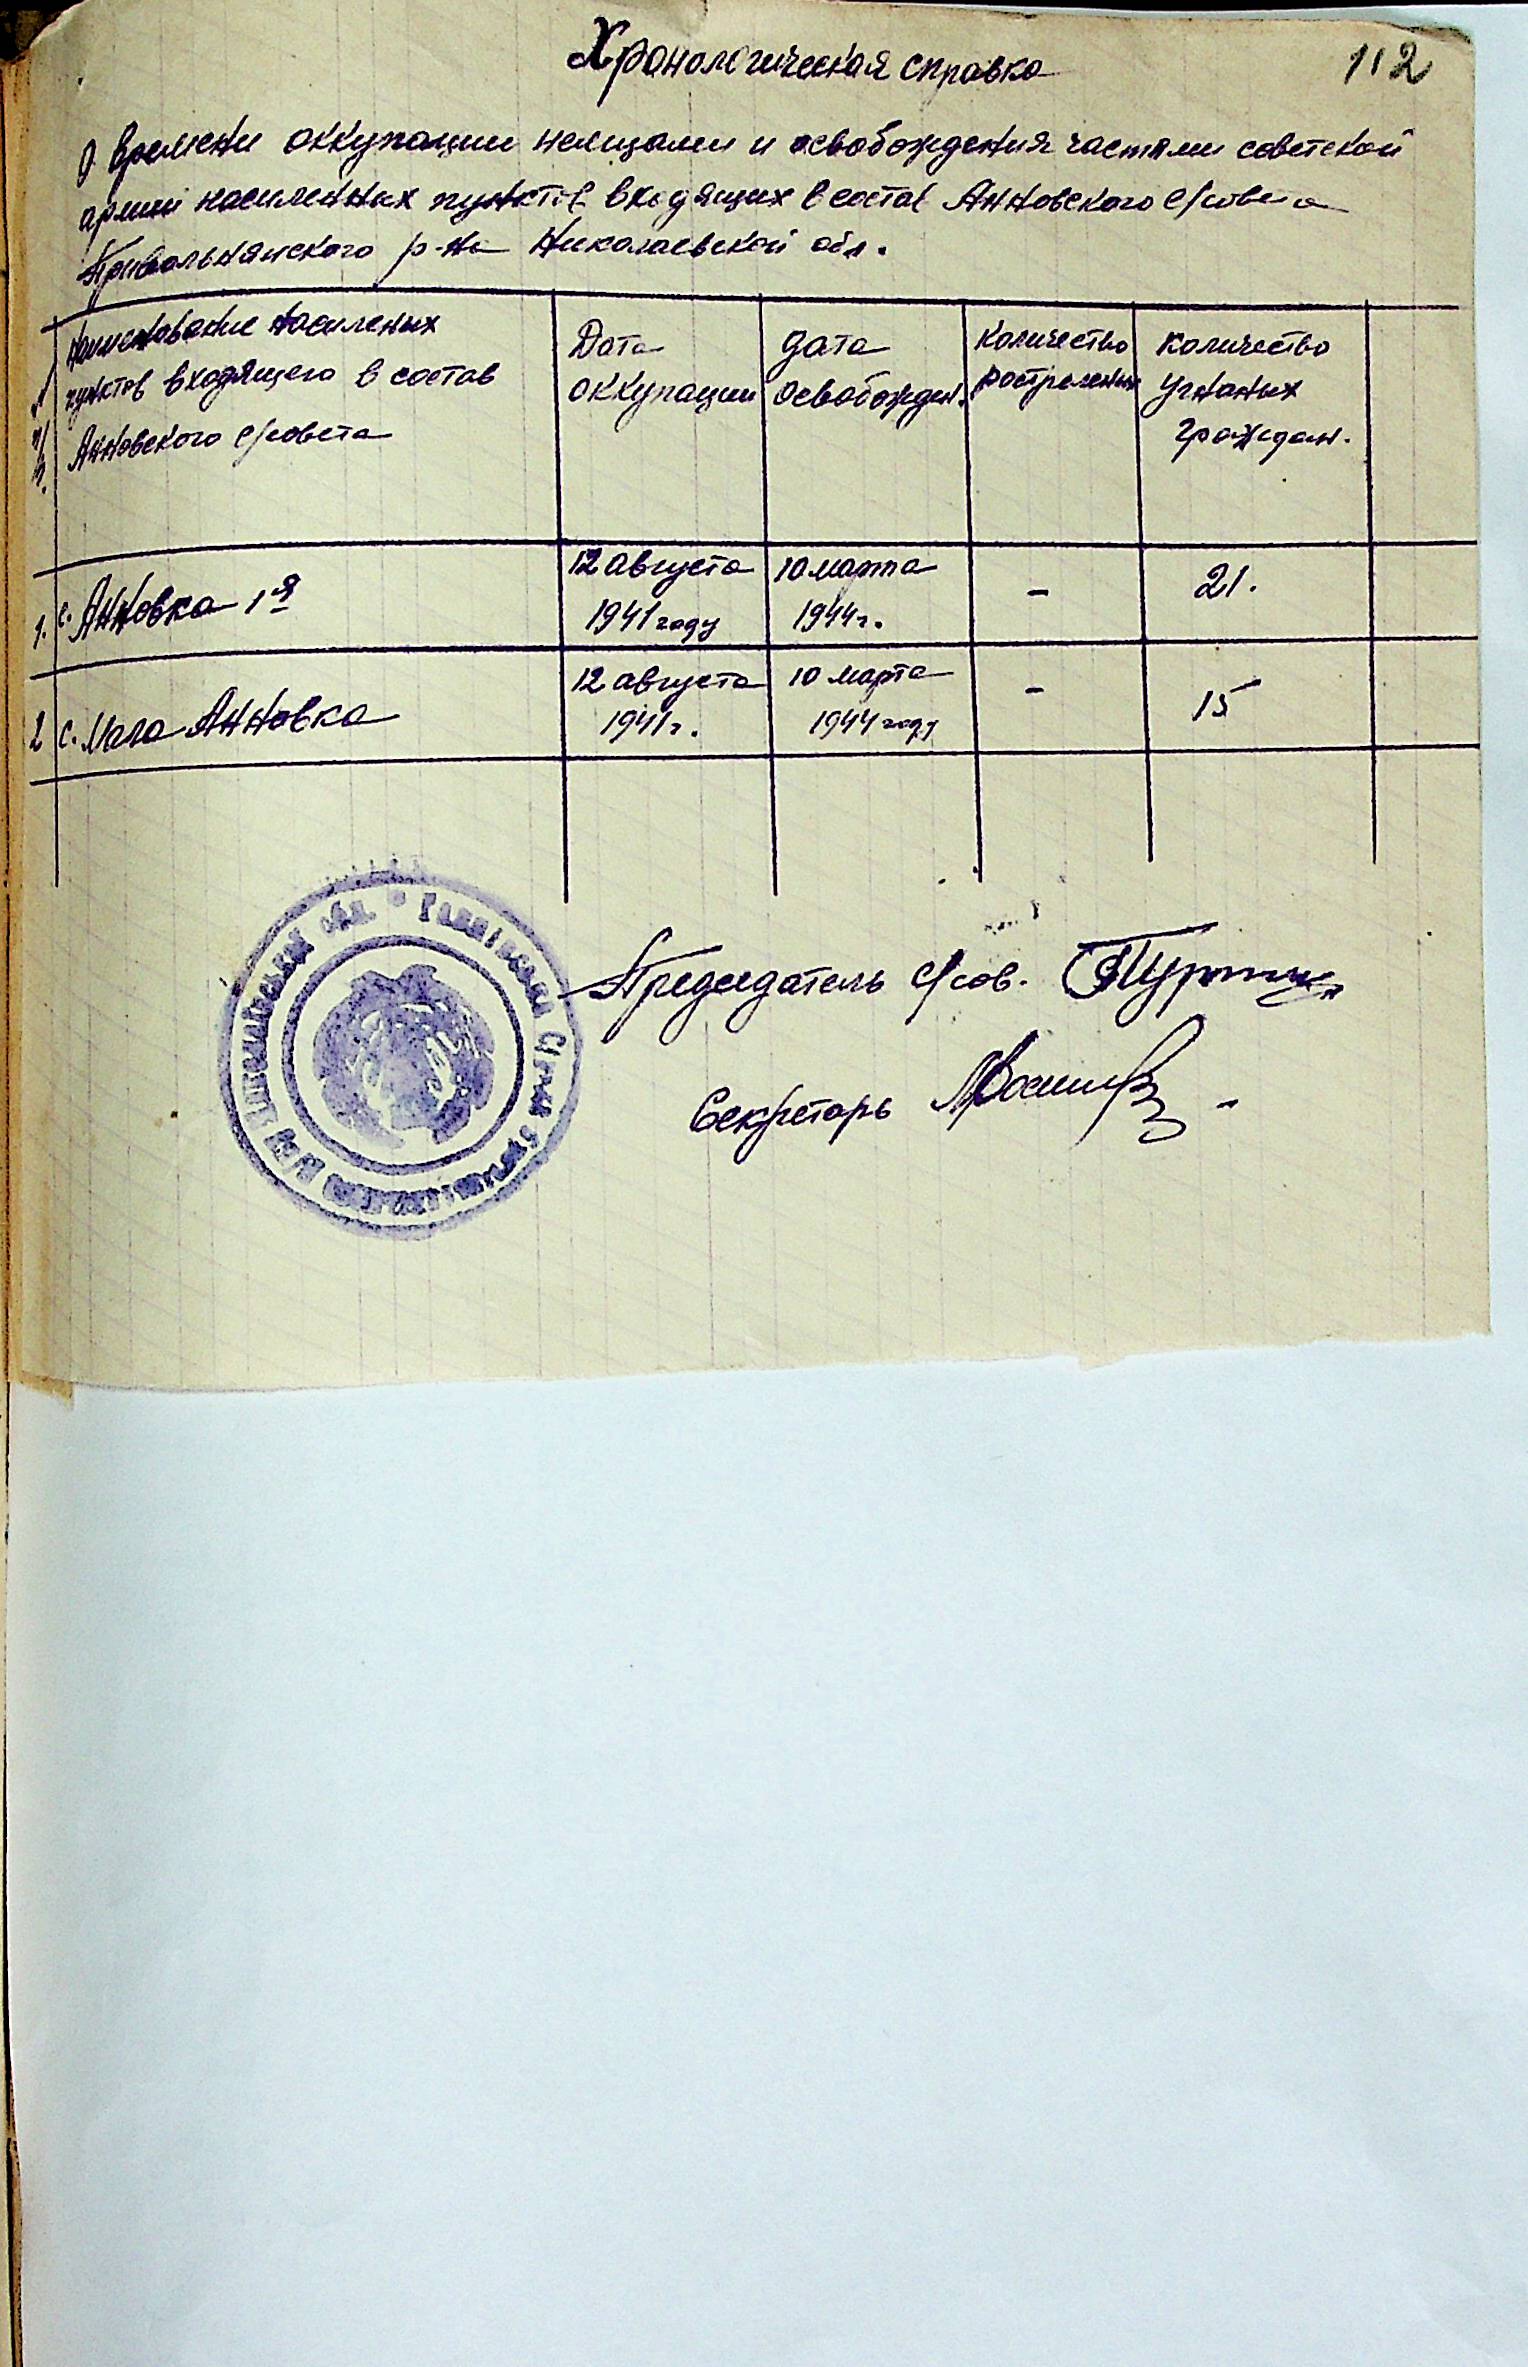 Хронологическая справка
112
О времени оккупации немцами и освобождения частями советской
армии населенных пунктов входящих в состав Анновского с/совета
Привольнянского р-на Николаевской обл.
№ п/п.
Наименование населеных
пунктов входящего в состав
Анновского с/совета
Дата
оккупации
Дата
освобожден.
Количество
растреленых
Количество
угнаных
граждан.
1. с. Анновка 1я
12 августа
1941 году
10 марта
1944 г.
-
21.
2 с. Мала Анновка
12 августа
1941 г.
10 марта
1944 году
-
15
Председатель с/сов.
Секретарь